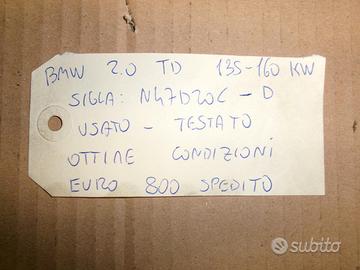 BMW 2.0 TD 135-160 KW
SIGLA: N47D20C - D
USATO - TESTATO
OTTIME CONDIZIONI
EURO 800 SPEDITO
subito